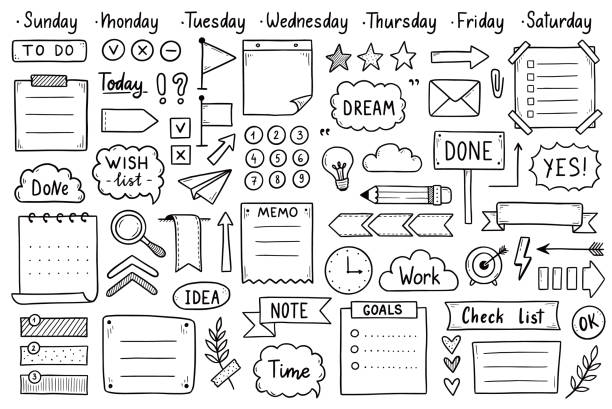 · Sunday · Monday · Tuesday · Wednesday · Thursday · Friday · Saturday
TO DO
Today
!?
DREAM
”
“
WISH
- list -
DoNe
1 2 3
4 5 6
7 8 9
DONE
YES!
MEMO
Work
IDEA
NOTE
GOALS
Check List
OK
1
2
3
Time